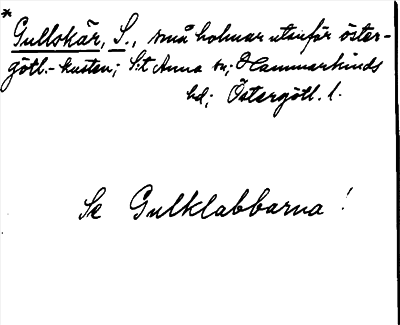 * Gullskär, S., små holmar utanför öster-
götl.-kusten; S:t Anna sn; Hammarkinds
hd; Östergötl. l.
Se Gulklabbarna!